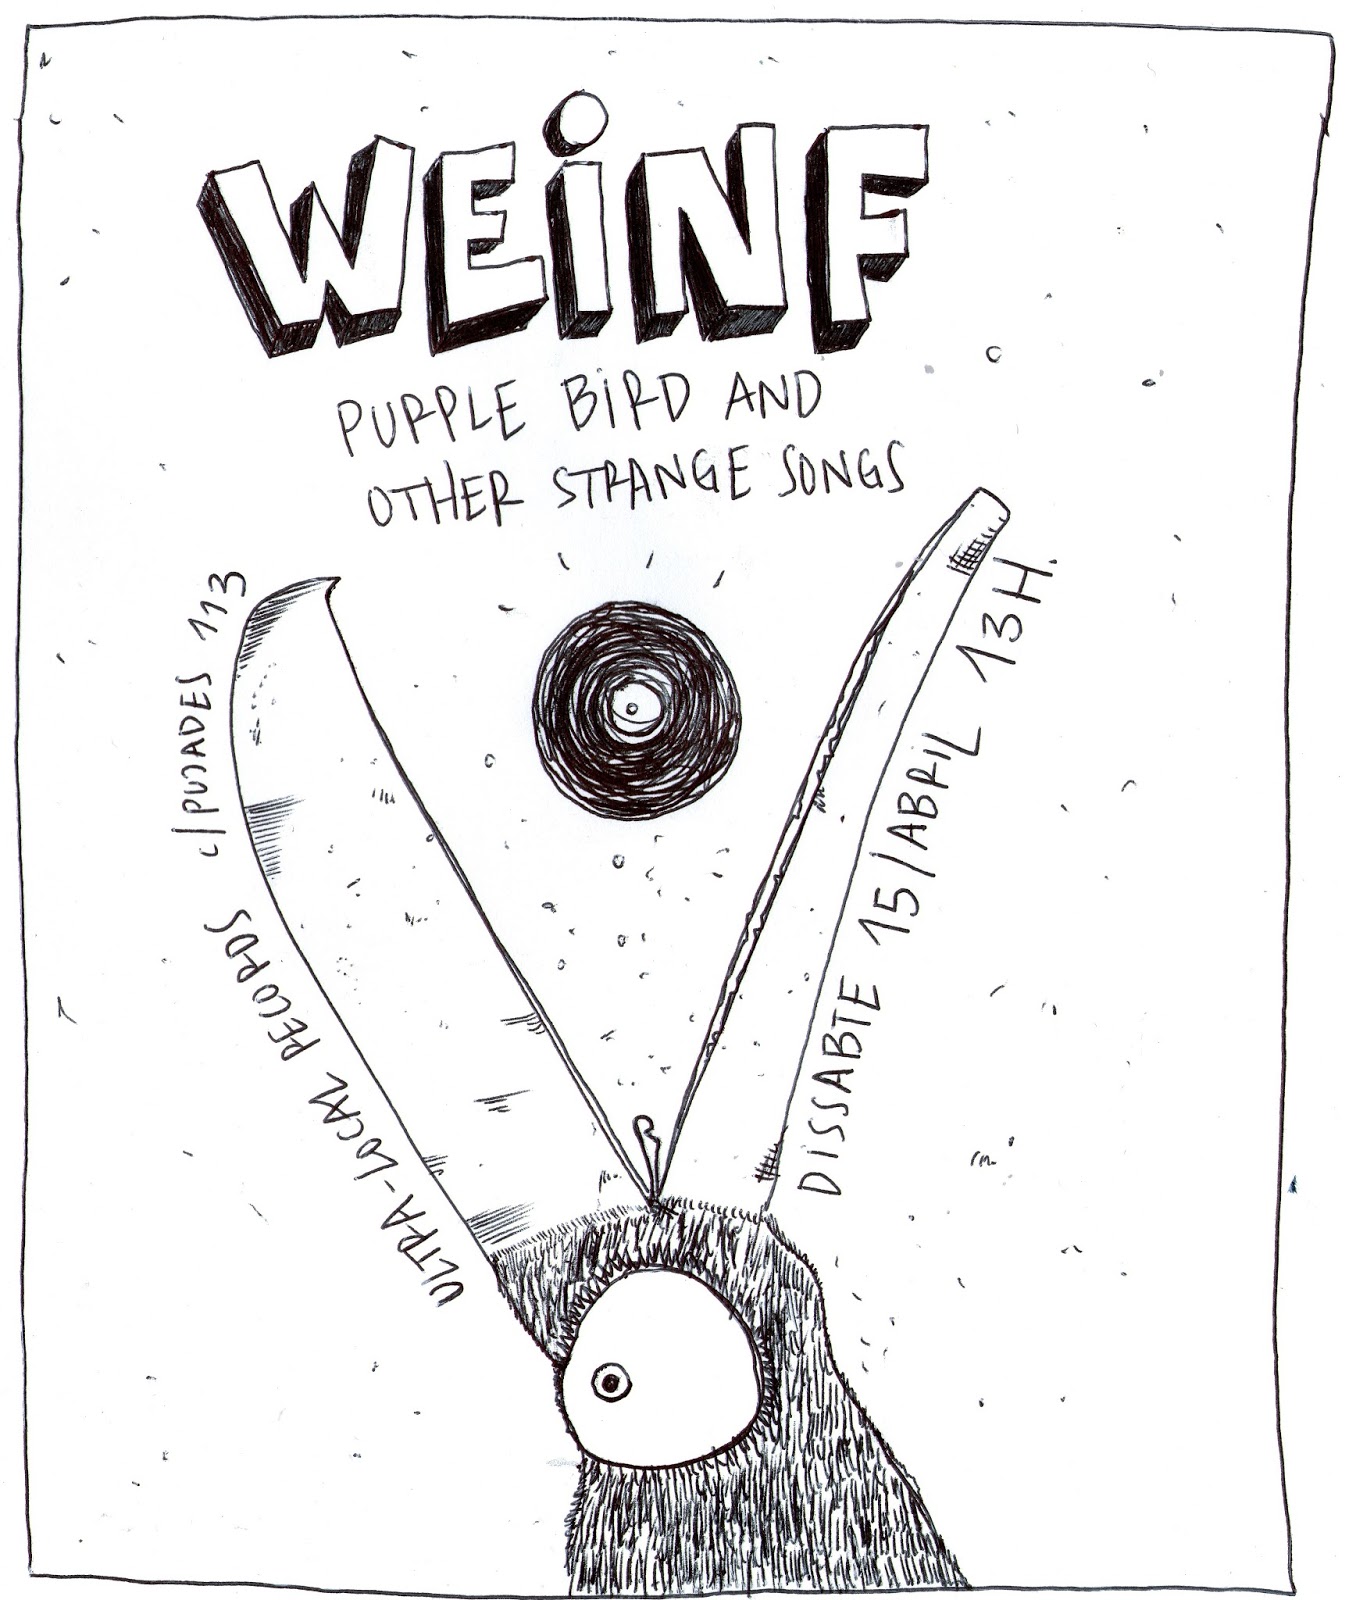 WEiNF
PURPLE BiRD AND
OTHER STRANGE SONGS
ULTRA-LOCAL RECORDS c/PUJADES 113
DiSSABTE 15/ABRiL 13H.